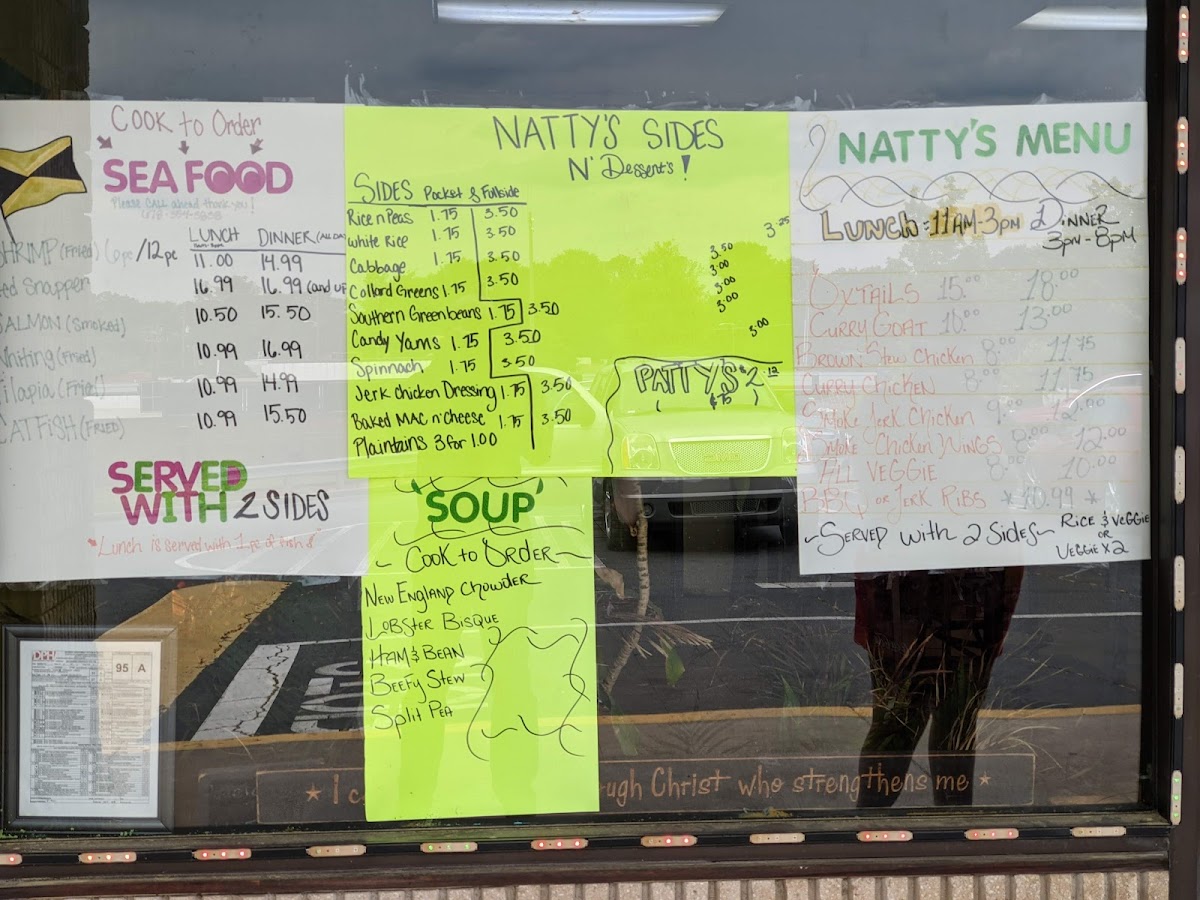 COOK to Order
SEAFOOD
Please CALL ahead thank you!
LUNCH DINNER (ALL DAY)
SHRIMP (Fried) 6pc/12pc 11.00 14.99
Snapper 16.99 16.99 (and up
SALMON (Smoked) 10.50 15.50
Whiting (Fried) 10.99 16.99
Tilapia (Fried) 10.99 14.99
CATFISH (FRIED) 10.99 15.50
SERVED
WITH 2 SIDES
*Lunch is served with 1 pc of fish
NATTY'S SIDES
N' Dessert's!
SIDES Pocket & Fullside
Rice n Peas 1.75 3.50
White Rice 1.75 3.50
Cabbage 1.75 3.50
Collard Greens 1.75 3.50
Southern Greenbeans 1.75 3.50
Candy Yams 1.75 3.50
Spinnach 1.75 3.50
Jerk Chicken Dressing 1.75 3.50
Baked MAC n' Cheese 1.75 3.50
Plaintains 3 for 1.00
3.25
3.50
3.00
3.00
3.00
3.00
PATTY'S
SOUP
~ COOK to ORDER ~
NEW ENGLAND CHOWDER
LOBSTER BISQUE
HAM & BEAN
BEEFY STEW
Split PEA
NATTY'S MENU
LUNCH = 11AM-3PM DINNER
3PM-8PM
OXTAILS 15.00 18.00
CURRY GOAT 10.00 13.00
BROWN STEW CHICKEN 8.00 11.75
CURRY CHICKEN 8.00 11.75
SMOKE JERK CHICKEN
SMOKE CHICKEN WINGS 12.00
ALL VEGGIE 8.00 10.00
BBQ OR JERK RIBS * 10.99 *
~SERVED with 2 Sides~ RICE & VEGGIE
OR
VEGGIE X 2
DPH
95 A
* I c ugh Christ who strengthens me *